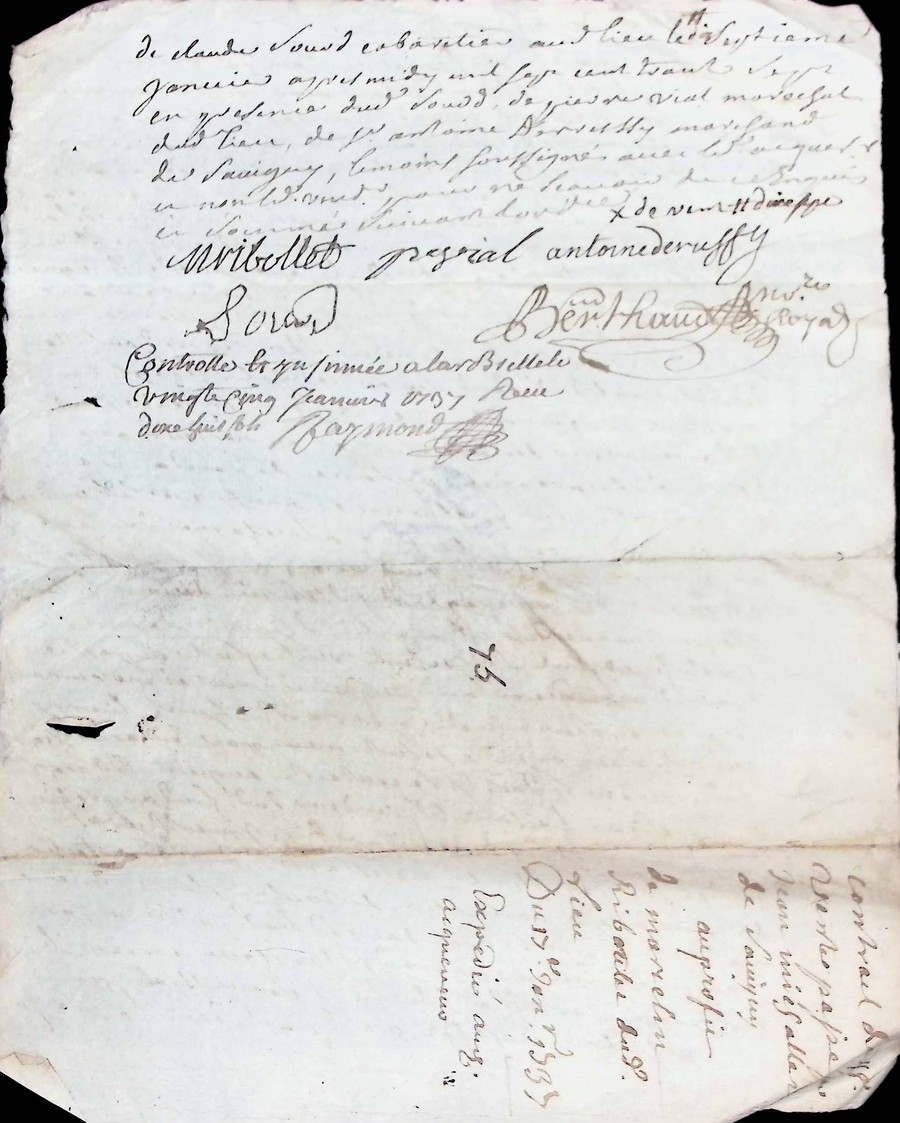 de claude Sourd cabaretier aud lieu le dix Septieme
Janvier apres midy mil sept cent trente Sept
en presence dud Sourd, de pierre vial marechal
dud lieu, de Sr antoine Derussy marchand
de Savigny, temoins soussignés avec led acquer
et non led. vend. pour ne scavoir de ce Enquis
et sommé suivant l'ordce
x de vint
Mribollet pregvial antoinederussy
Sourd Berthaud nore Royal
Controllé & Insinuée a larBrelle le
vingt Cinq Janvier 1737 Receu
Raymond
75
contrat de
vente passé par
Jean
de Savigny
au profit
de marcelin
Ribollet dud.
lieu
Du 17e Janr. 1737
Expedié aud.
acquereur